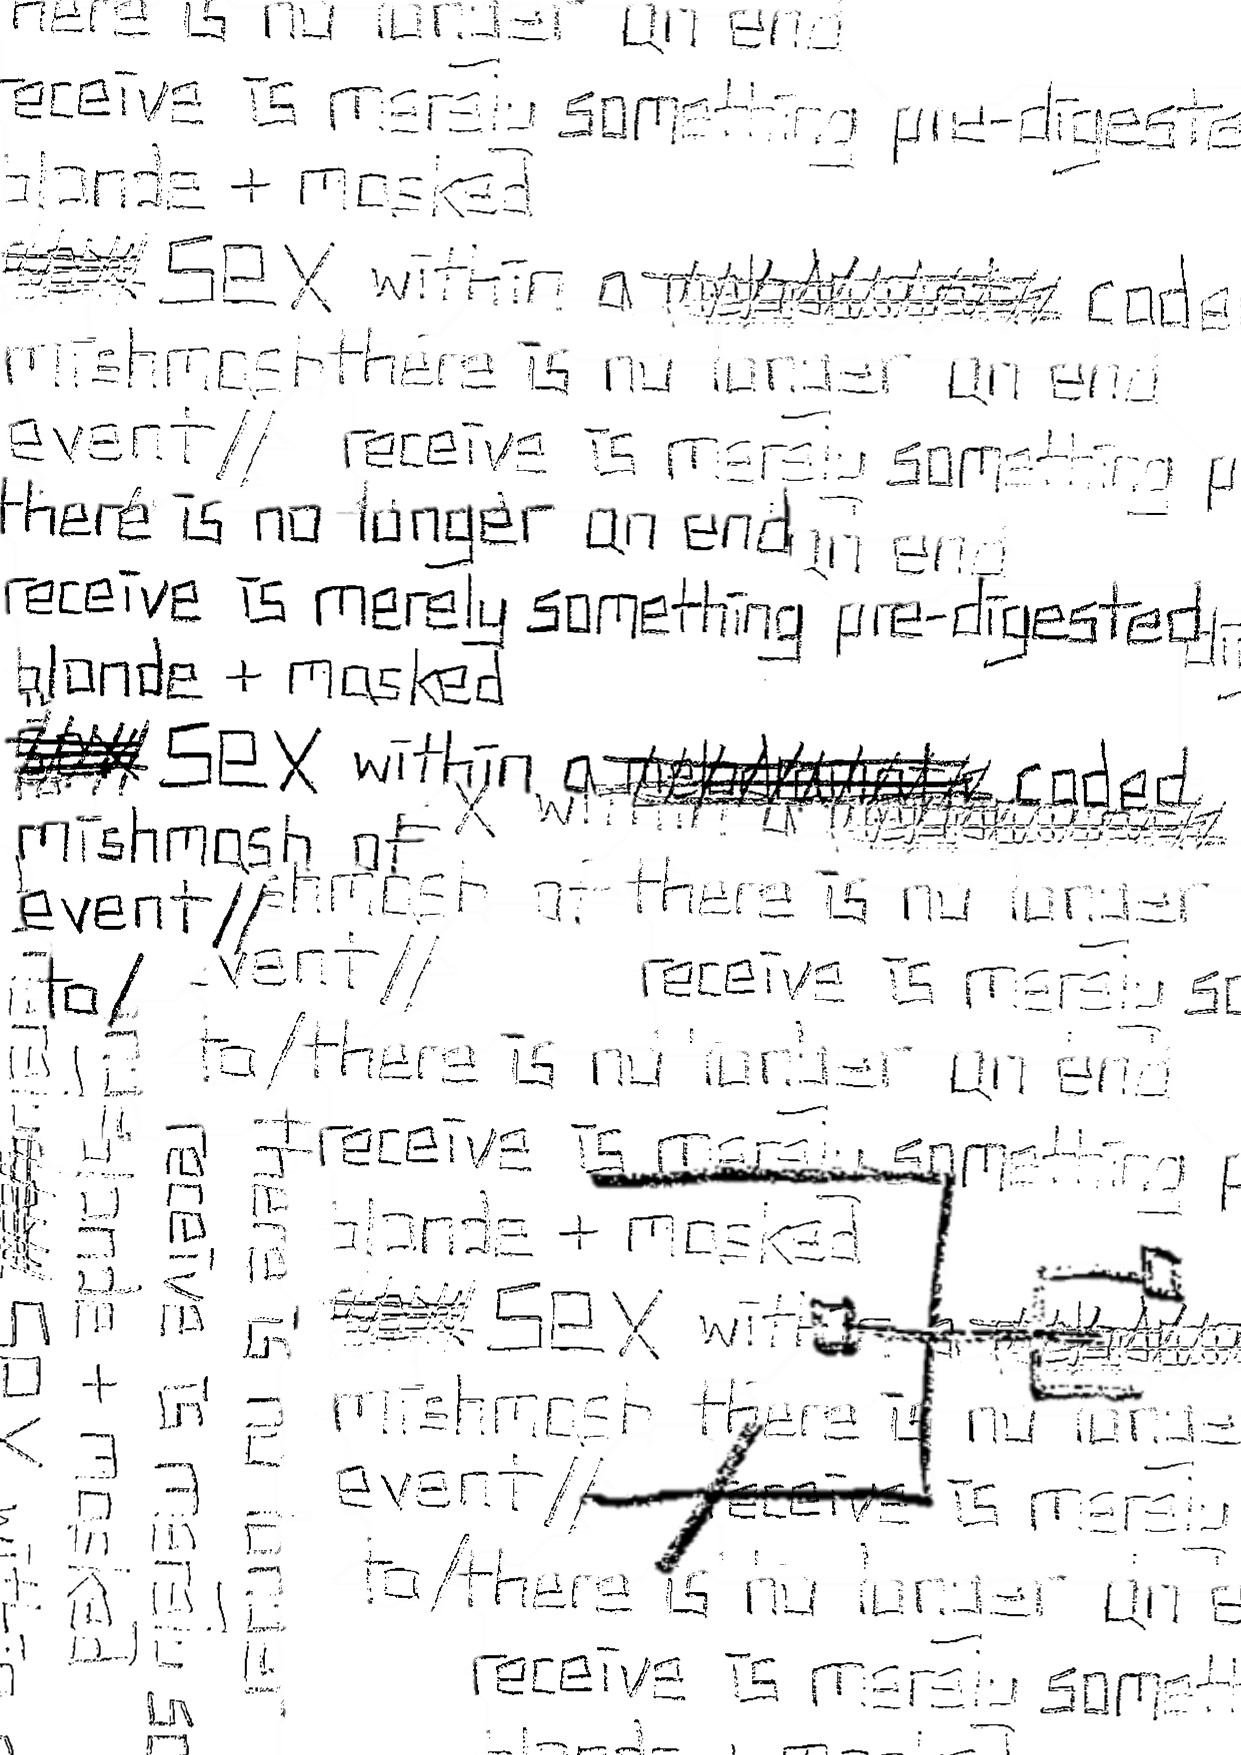 there is no longer an end
receive is merely something pre-digeste
blande + masked
SEX within a code
mishmosh there is no longer an end
event// receive is merely something p
there is no longer an end in end
receive is merely something pre-digested di
blande + masked
SEX within a coded
X within a
mishmosh of
shmosh of there is no longer
event//
vent//
receive is merely so
to/
to/there is no longer an end
receive is merely something p
blande + masked
SEX with
mishmosh there is no longe
event// receive is merely
to/there is no longer an e
receive is merely someth
blande + masked
there is no longe
receive is merely so
blande + masked
SEX within